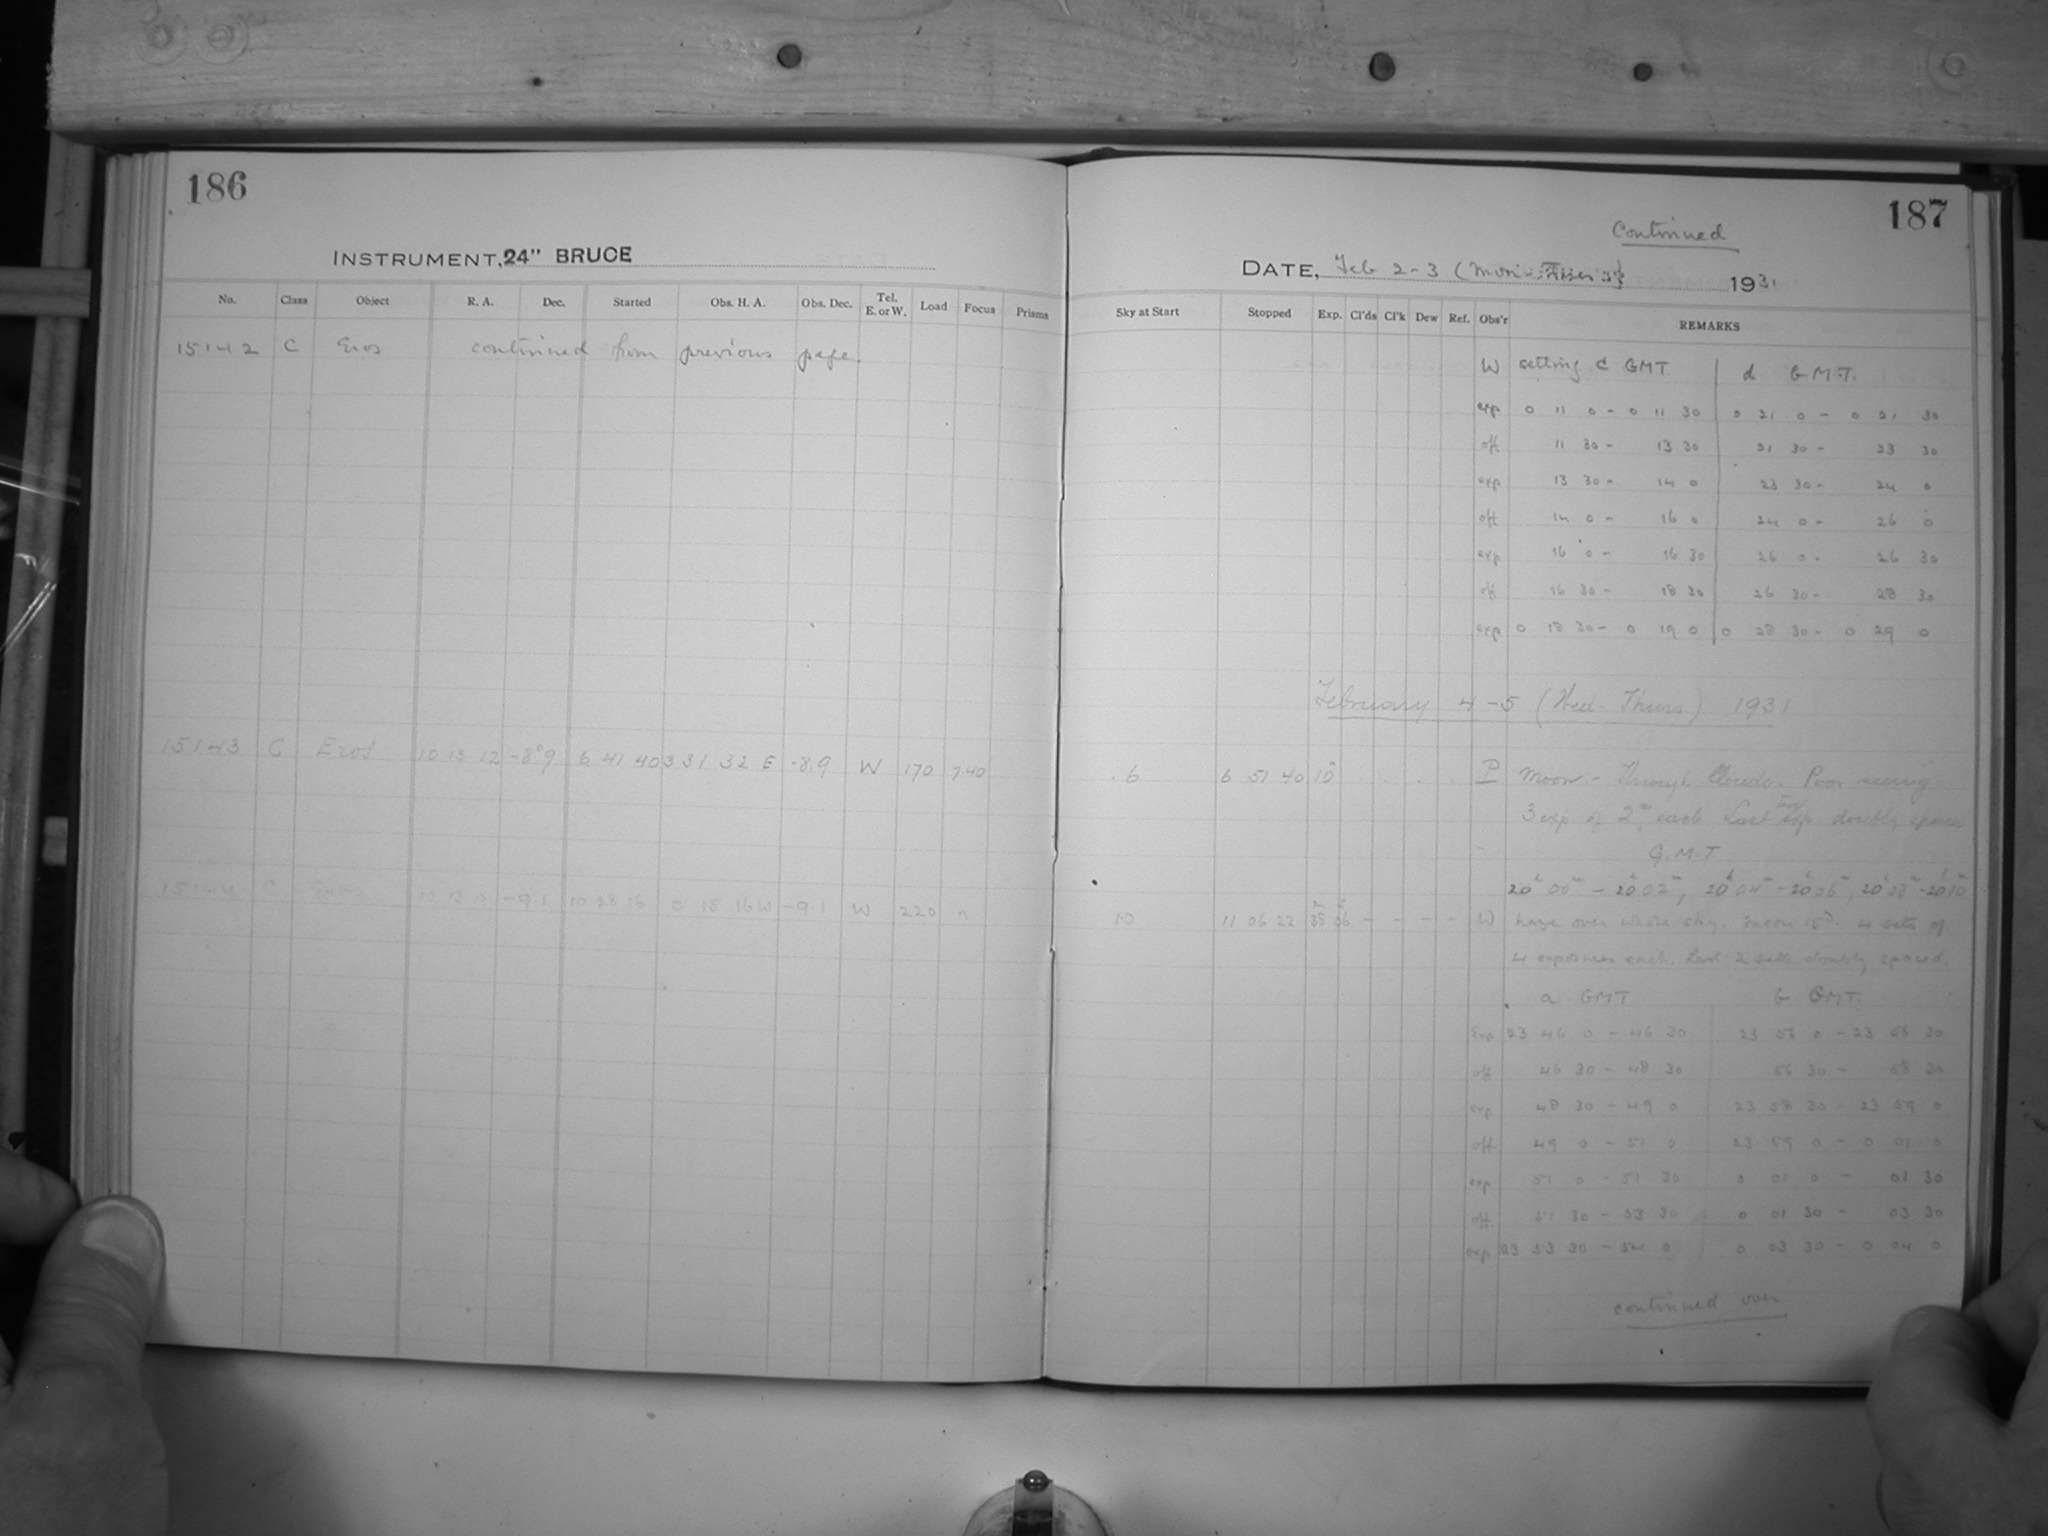 186
INSTRUMENT, 24" BRUCE
No. Class Object R. A. Dec. Started Obs. H. A. Obs. Dec. Tel. E. or W. Load Focus Prisms
15142 C Eros continued from previous page.
15143 C Eros 10 13 12 -8°9 6 41 40 3 31 32 E -8.9 W 170 7.40
15144 C Eros 10 13 0 -9.1 10 28 16 0 15 16 W -9.1 W 220 "
187
Continued
DATE, Feb 2-3 (Mon - Tues) 1931
Sky at Start Stopped Exp. Cl'ds Cl'k Dew Ref. Obs'r REMARKS
W setting c GMT d G.M.T.
exp 0 11 0 - 0 11 30 0 21 0 - 0 21 30
off 11 30 - 13 30 21 30 - 23 30
exp 13 30 - 14 0 23 30 - 24 0
off 14 0 - 16 0 24 0 - 26 0
exp 16 0 - 16 30 26 0 - 26 30
off 16 30 - 18 30 26 30 - 28 30
exp 0 18 30 - 0 19 0 0 28 30 - 0 29 0
February 4-5 (Wed-Thurs) 1931
6 6 51 40 10 P Moon - Through Clouds. Poor seeing
3 exp of 2m each Last two exp. doubly spaced
G.M.T
20h 00m - 20h 02m, 20h 04m - 20h 06m, 20h 08m - 20h 10m
10 11 06 22 38m 06s - - - - W haze over whole sky. moon 15d. 4 sets of
4 exposures each. Last 2 sets doubly spaced.
a GMT b GMT.
Exp 23 46 0 - 46 30 23 56 0 - 23 56 30
off 46 30 - 48 30 56 30 - 58 30
exp 48 30 - 49 0 23 58 30 - 23 59 0
off 49 0 - 51 0 23 59 0 - 0 01 0
exp 51 0 - 51 30 0 01 0 - 01 30
off 51 30 - 53 30 0 01 30 - 03 30
exp 23 53 30 - 54 0 0 03 30 - 0 04 0
continued over